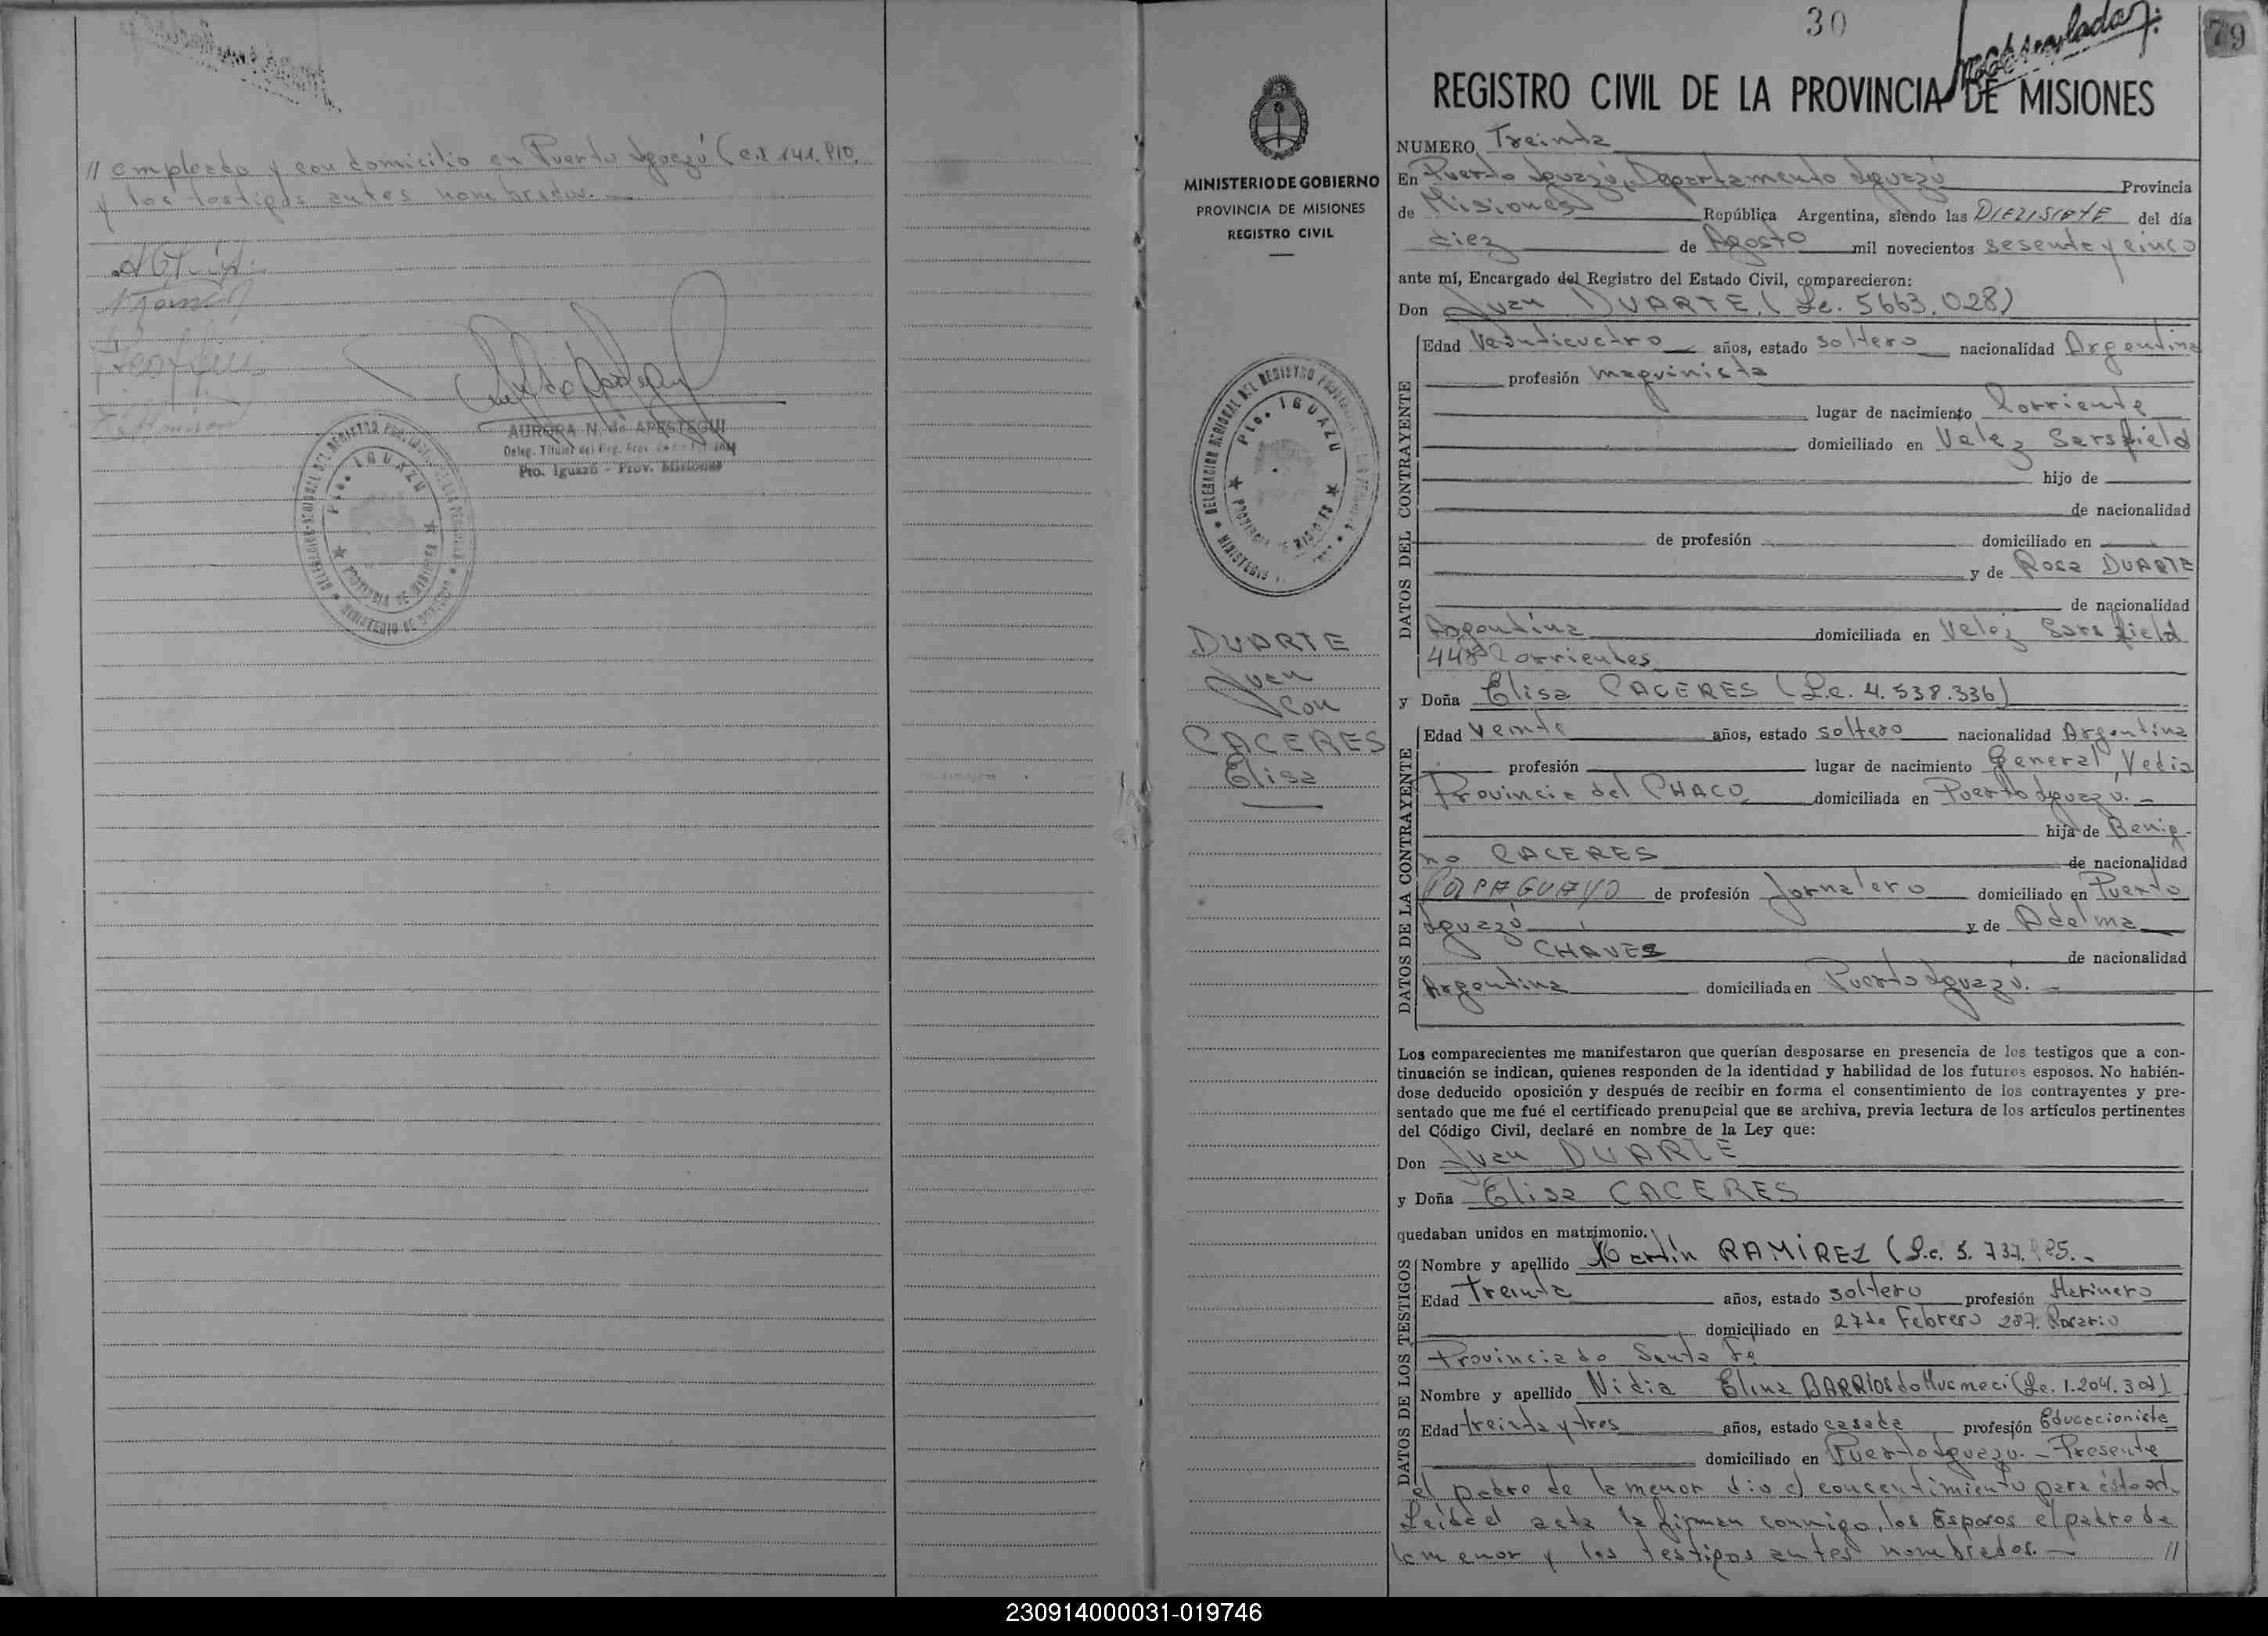 // empleado y con domicilio en Puerto Iguazú (C.I 141.910.
y los testigos antes nombrados.
AURORA N. de APESTEGUI
Pto. Iguazú - Prov. Misiones
Pto. IGUAZU
30
79
REGISTRO CIVIL DE LA PROVINCIA DE MISIONES
MINISTERIO DE GOBIERNO
PROVINCIA DE MISIONES
REGISTRO CIVIL
Pto. IGUAZU
DUARTE
Juan
con
CACERES
Elisa
NUMERO Treinta
En Puerto Iguazú, Departamento Iguazú Provincia
de Misiones República Argentina, siendo las DIEZISIETE del día
diez de Agosto mil novecientos sesenta y cinco
ante mí, Encargado del Registro del Estado Civil, comparecieron:
Don Juan DUARTE. (Le. 5663.028)
DATOS DEL CONTRAYENTE
Edad Veinticuatro años, estado soltero nacionalidad Argentina
profesión maquinista
lugar de nacimiento Corriente
domiciliado en Velez Sarsfield
hijo de
de nacionalidad
de profesión domiciliado en
y de Rosa DUARTE
de nacionalidad
Argentina domiciliada en Velez Sarsfield
448 Corrientes
y Doña Elisa CACERES (L.c. 4.538.336)
DATOS DE LA CONTRAYENTE
Edad Veinte años, estado soltero nacionalidad Argentina
profesión lugar de nacimiento General Vedia
Provincia del CHACO domiciliada en Puerto Iguazú.-
hija de Benig-
no CACERES de nacionalidad
PARAGUAYO de profesión Jornalero domiciliado en Puerto
Iguazú y de Adelma
CHAVES de nacionalidad
Argentina domiciliada en Puerto Iguazú.-
Los comparecientes me manifestaron que querían desposarse en presencia de los testigos que a con-
tinuación se indican, quienes responden de la identidad y habilidad de los futuros esposos. No habién-
dose deducido oposición y después de recibir en forma el consentimiento de los contrayentes y pre-
sentado que me fué el certificado prenupcial que se archiva, previa lectura de los artículos pertinentes
del Código Civil, declaré en nombre de la Ley que:
Don Juan DUARTE
y Doña Elisa CACERES
quedaban unidos en matrimonio.
DATOS DE LOS TESTIGOS
Nombre y apellido Martín RAMIREZ (L.e. 5.737.
Edad Treinta años, estado soltero profesión Marinero
domiciliado en 27 de Febrero 287. Rosario
Provincia de Santa Fe
Nombre y apellido Nidia Elina BARRIOS de (Le. 1.204.30
Edad treinta y tres años, estado casada profesión Educacionista
domiciliado en Puerto Iguazú.- Presente
el padre de la menor dio el consentimiento para este act.
Leida el acta la firman conmigo, los Esposos el padre de
la menor y los testigos antes nombrados.- //
230914000031-019746